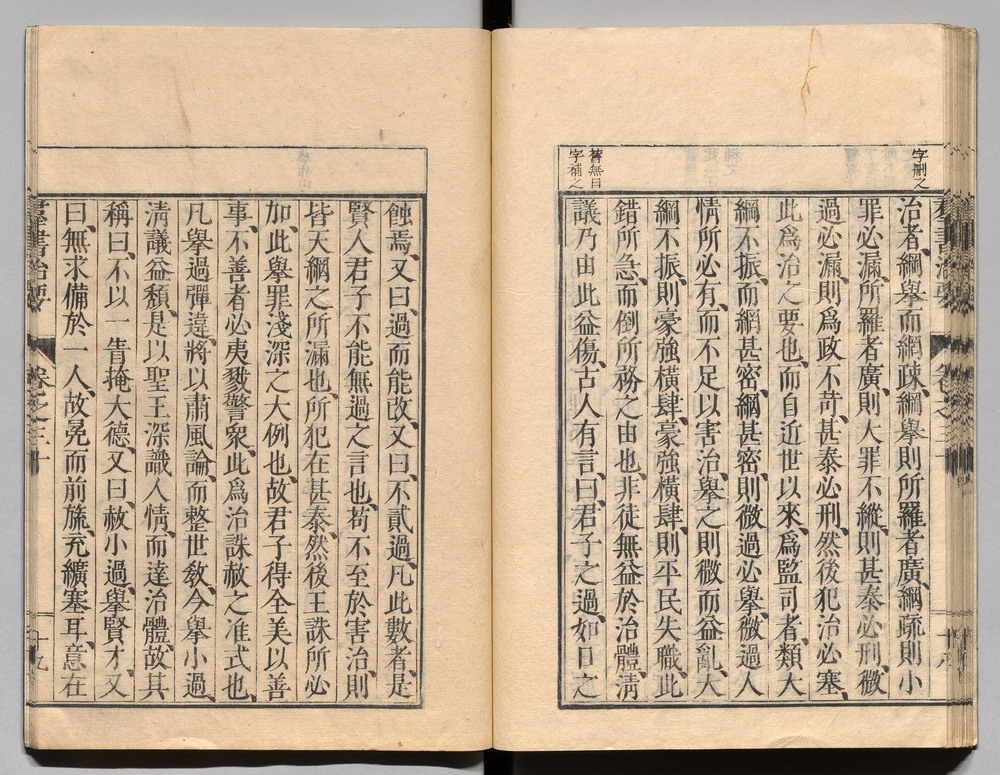 字刪之
治者、綱舉而網疎、綱舉則所羅者廣、網疏則小
罪必漏、所羅者廣、則大罪不縱、則甚泰必刑、微
過必漏、則爲政不苛、甚泰必刑、然後犯治必塞、
此爲治之要也、而自近世以來、爲監司者、類大
綱不振、而網甚密、網甚密、則微過必舉、微過人
情所必有、而不足以害治、舉之則微而益亂、大
綱不振、則豪強橫肆、豪強橫肆、則平民失職、此
錯所急、而倒所務之由也、非徒無益於治體、清
議乃由此益傷、古人有言、曰、君子之過、如日之
舊無曰
字補之
蝕焉、又曰、過而能改、又曰、不貳過、凡此數者、是
賢人君子不能無過之言也、苟不至於害治、則
皆天網之所漏也、所犯在甚泰、然後王誅所必
加、此舉罪淺深之大例也、故君子得全美以善
事、不善者必夷戮警衆、此爲治誅赦之准式也、
凡舉過彈違、將以肅風論、而整世教、今舉小過、
清議益頹、是以聖王深識人情、而達治體、故其
稱曰、不以一眚掩大德、又曰、赦小過、舉賢才、又
曰、無求備於一人、故冕而前旒、充纊塞耳、意在
卷之三十
十九